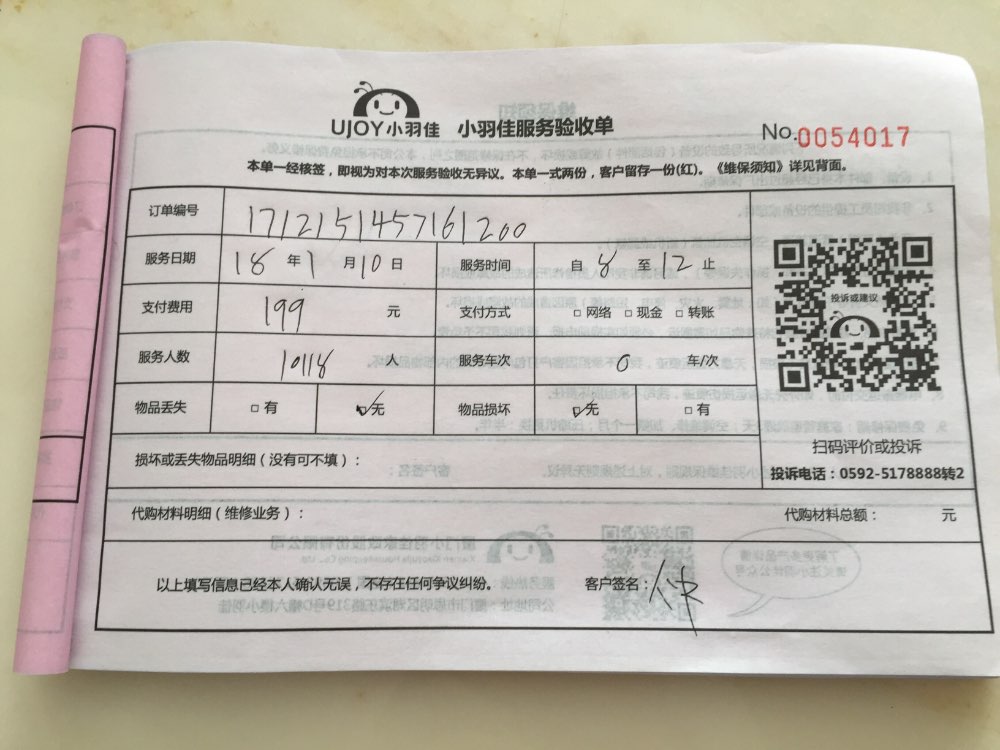 UJOY小羽佳 小羽佳服务验收单 No.0054017
本单一经核签，即视为对本次服务验收无异议。本单一式两份，客户留存一份(红)。《维保须知》详见背面。
订单编号 1712151457161200
服务日期 18 年 1 月 10 日 服务时间 自 8 至 12 止
支付费用 199 元 支付方式 □ 网络 □ 现金 □ 转账
服务人数 10118 人 服务车次 0 车/次
物品丢失 □ 有 ☑ 无 物品损坏 ☑ 无 □ 有
投诉或建议
扫码评价或投诉
投诉电话：0592-5178888转2
损坏或丢失物品明细（没有可不填）：
代购材料明细（维修业务）： 代购材料总额： 元
以上填写信息已经本人确认无误，不存在任何争议纠纷。 客户签名：